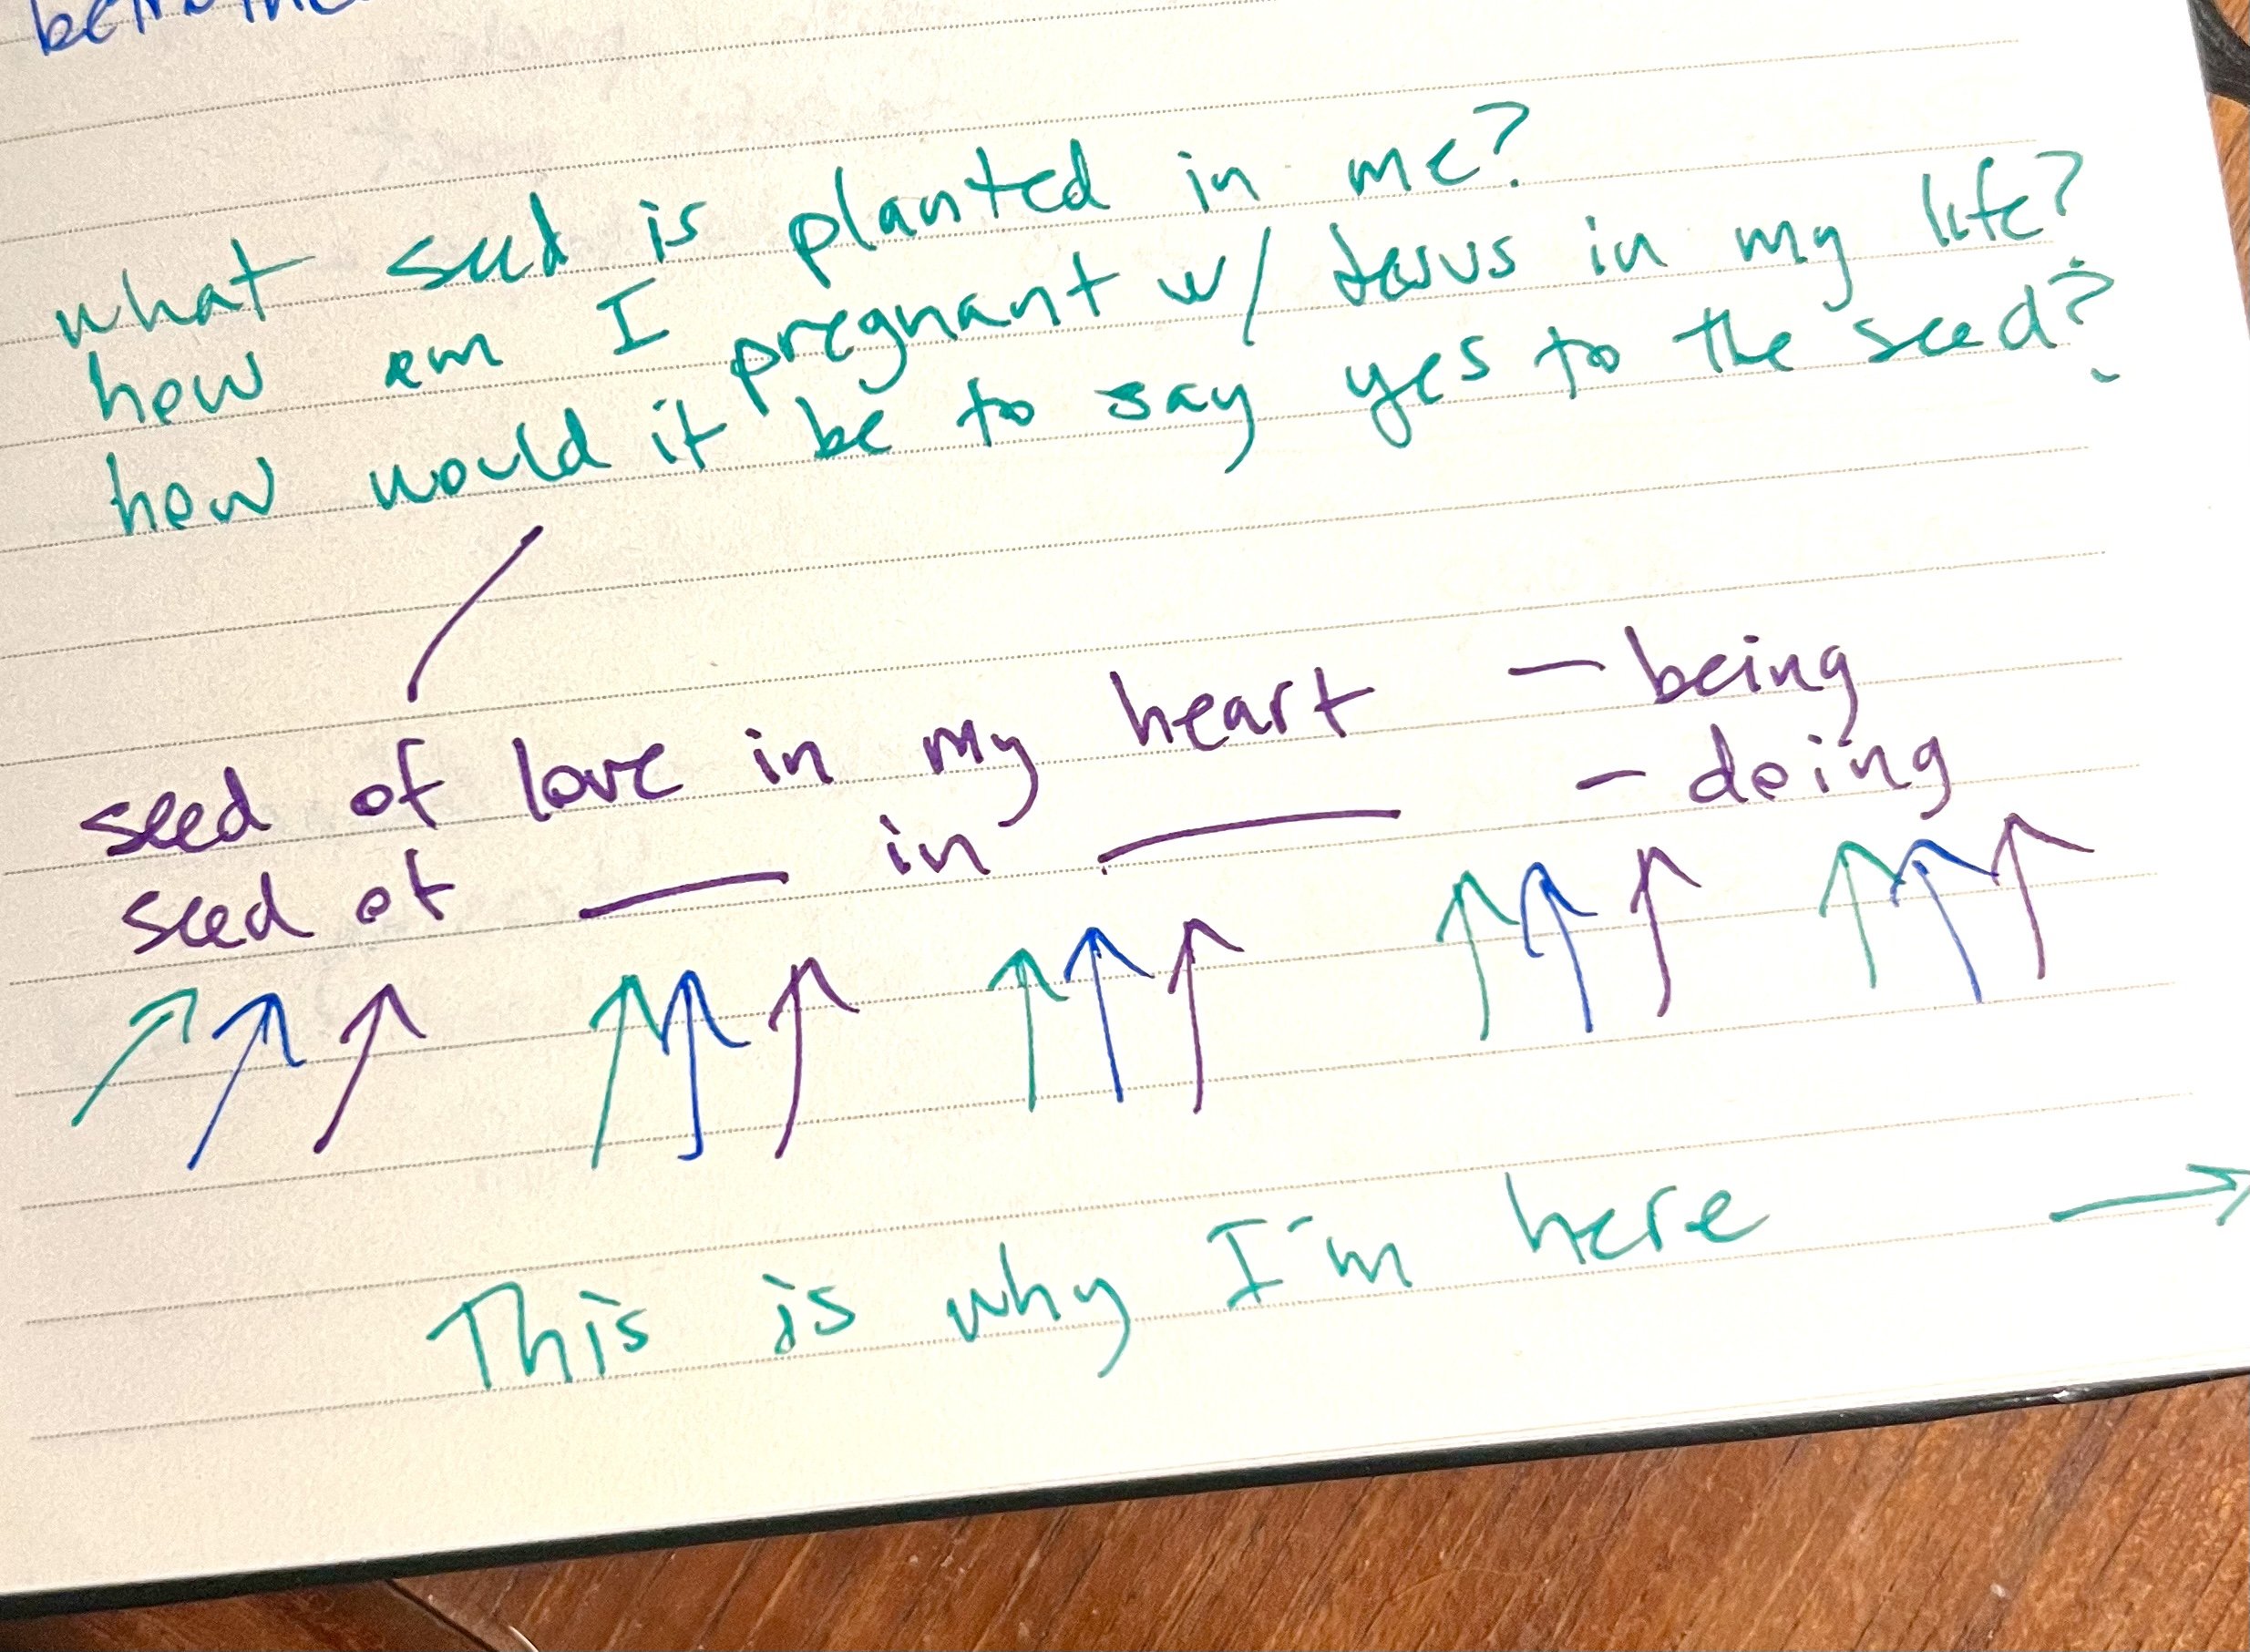 what seed is planted in me?
how am I pregnant w/ Jesus in my life?
how would it be to say yes to the seed?
seed of love in my heart - being
seed of ___ in ___ - doing
This is why I'm here →